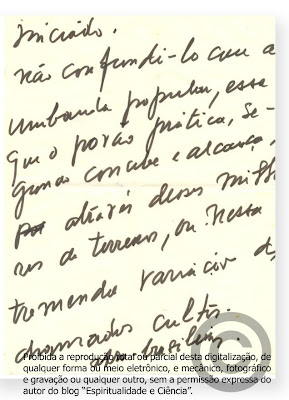 iniciado.
não confundi-lo com a
umbanda popular, essa
que o povão pratica, se-
gundo concebe e alcança,
através desses milha
res de terreiros, ou nessa
tremenda variação de
chamados cultos
afro brasileiros
Proibida a reprodução total ou parcial desta digitalização, de
qualquer forma ou meio eletrônico, e mecânico, fotográfico
e gravação ou qualquer outro, sem a permissão expressa do
autor do blog "Espiritualidade e Ciência".
©